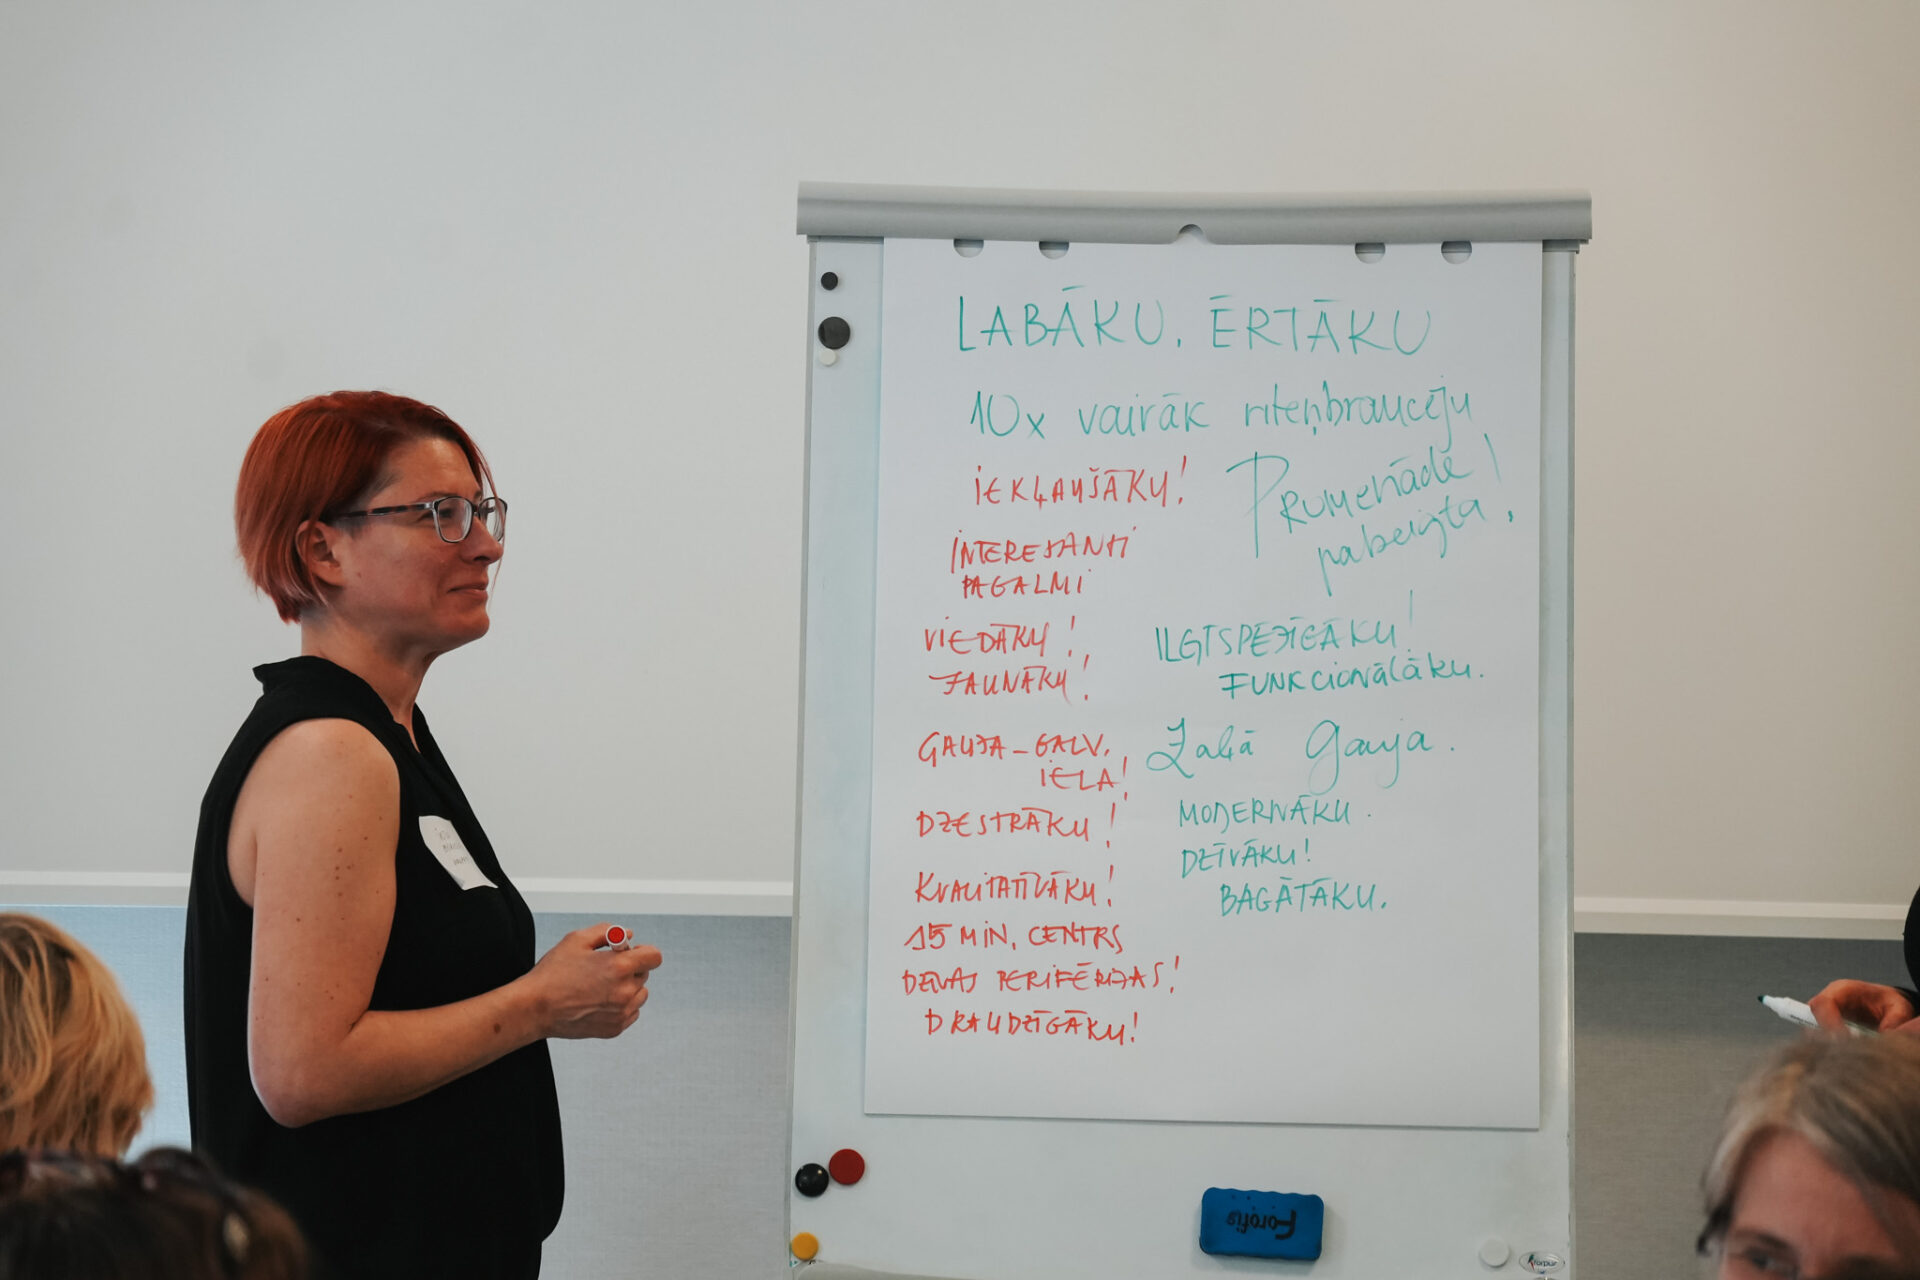 LABĀKU, ĒRTĀKU
10x vairāk riteņbraucēju
IEKĻAUŠĀKU!
Promenāde
pabeigta!
INTERESANTI
PAGALMI
VIEDĀKU!
JAUNĀKU!
ILGTSPĒJĪGĀKU!
FUNKcionālāku.
GAUJA – GALV.
IELA!
Zaļā Gauja.
DZESTRĀKU!
MODERNĀKU.
DZĪVĀKU!
BAGĀTĀKU.
KVALITATĪVĀKU!
15 MIN. CENTRS
PERIFĒRIJAS!
DRAUDZĪGĀKU!
Forofis
forpus